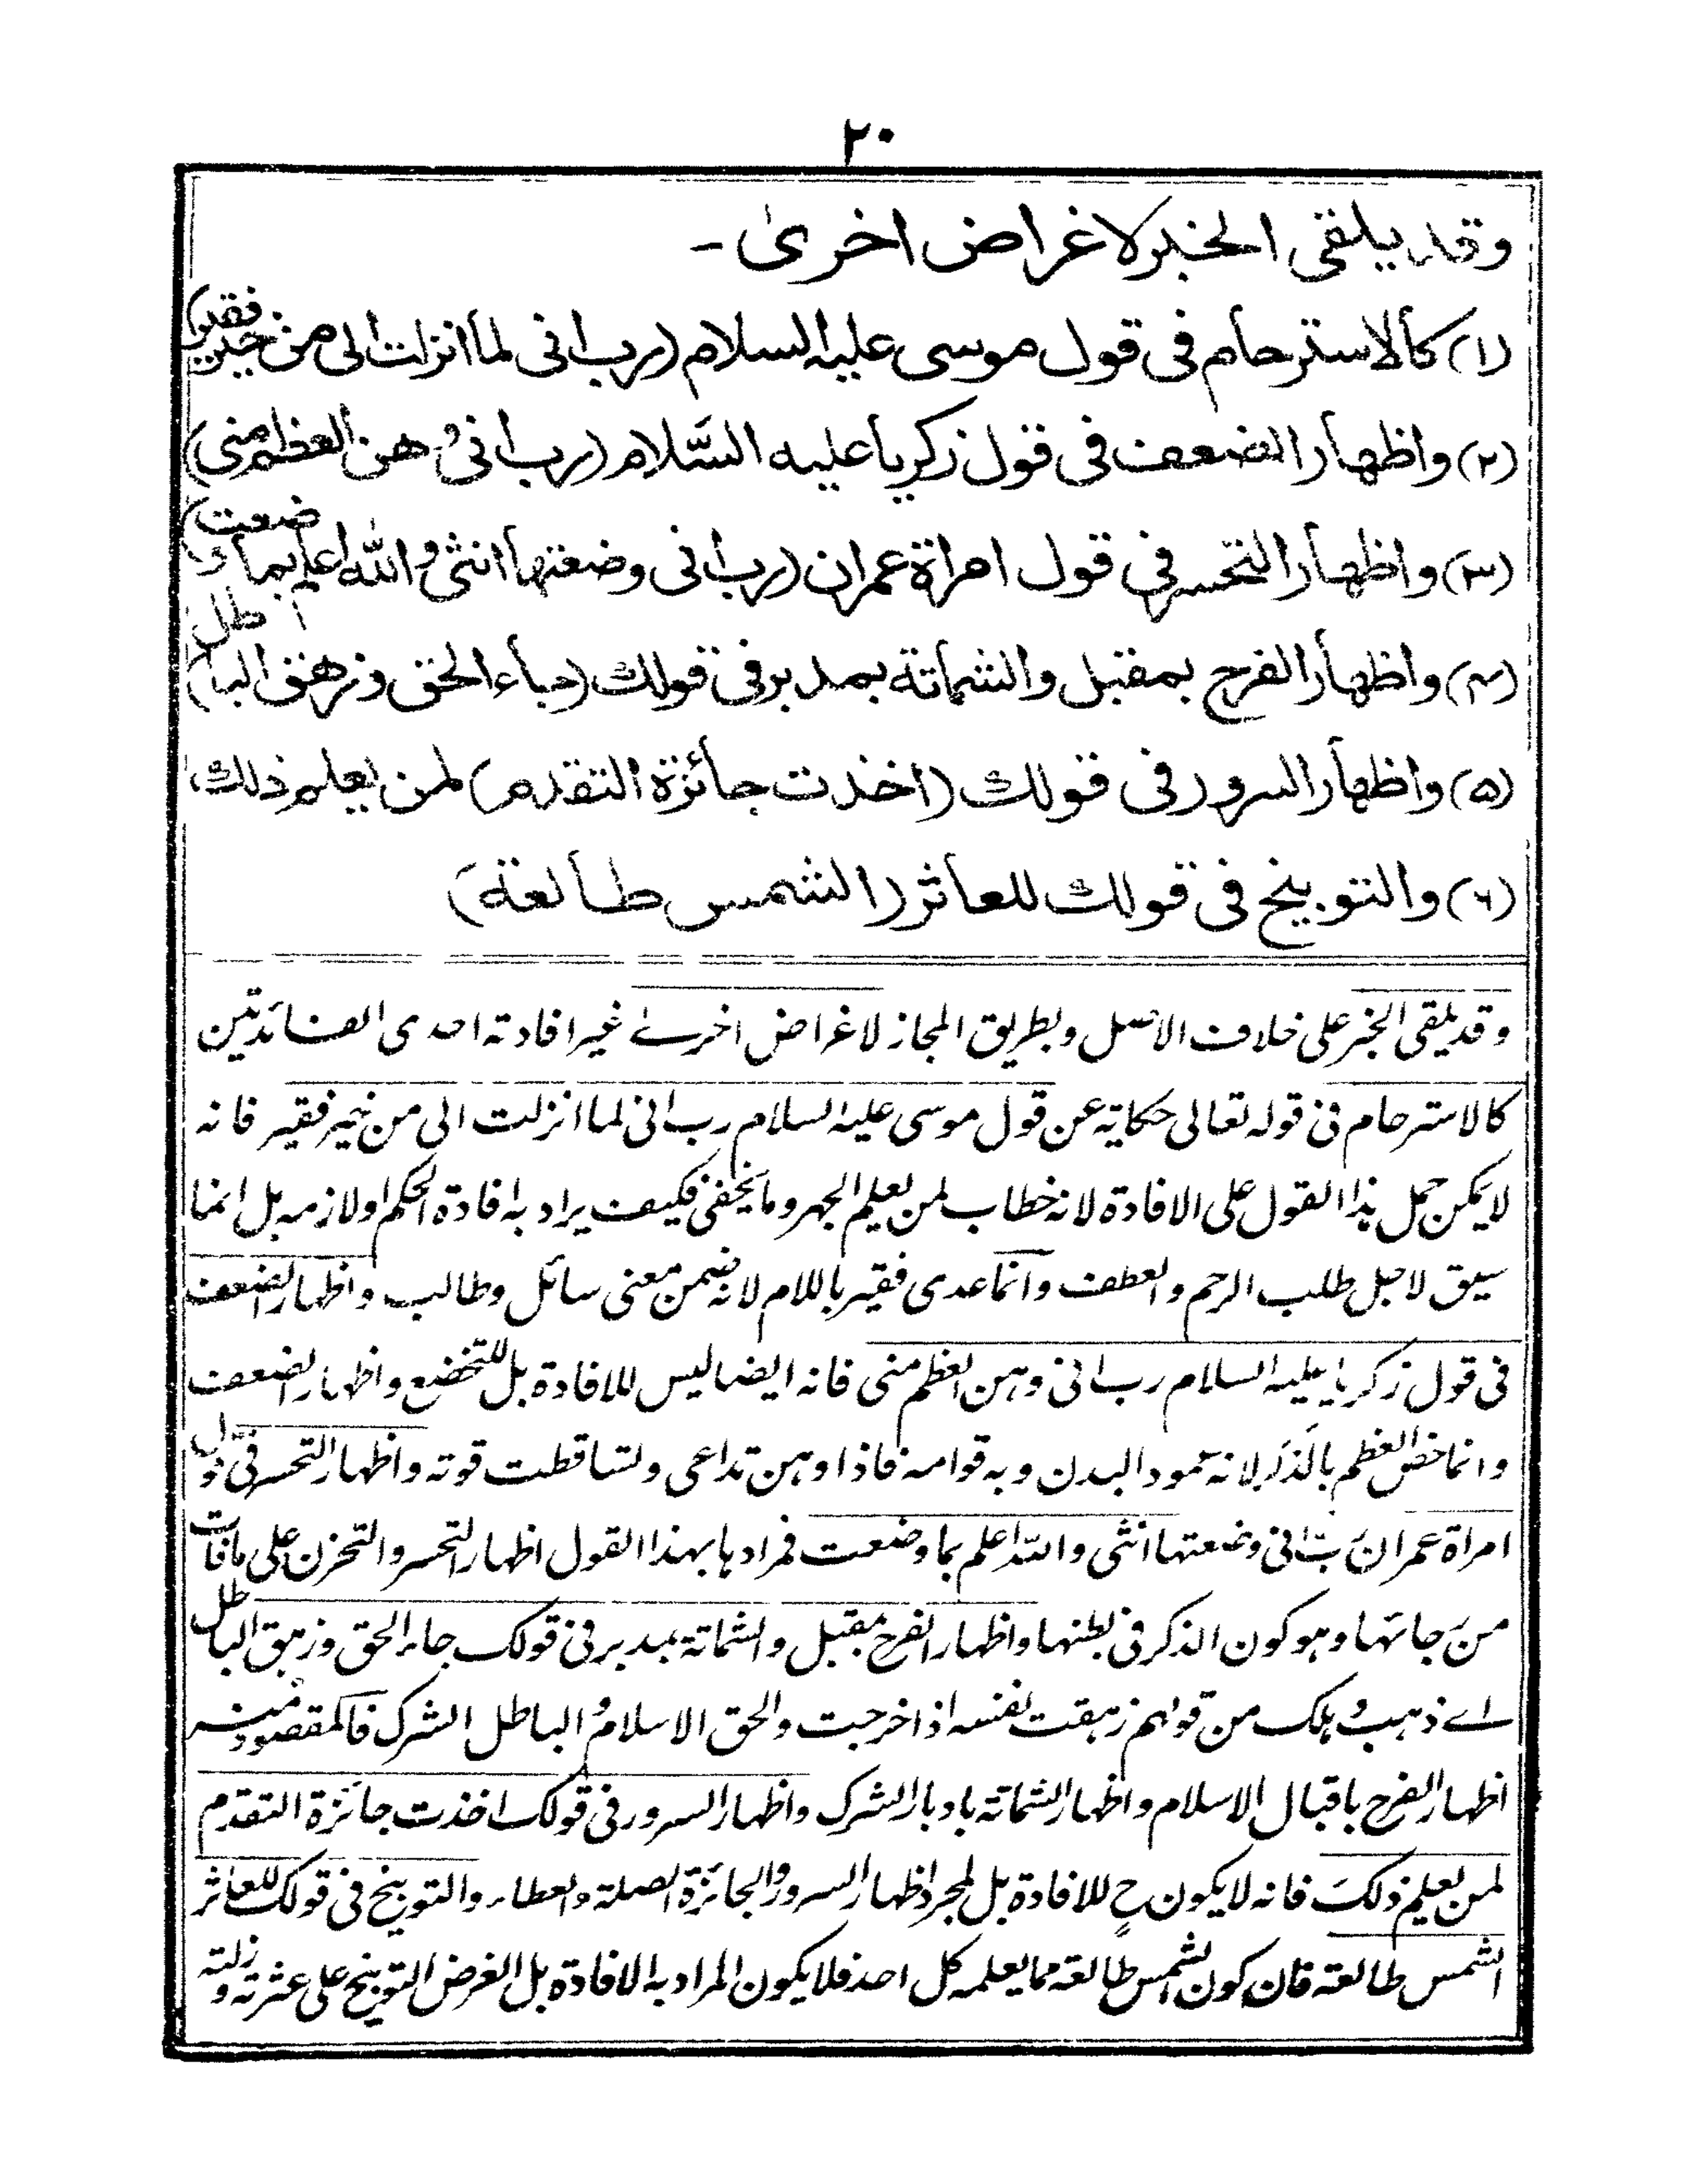 ٢٠
وقد يلقى الخبر لاغراض اخرىٰ -
(١) كالاسترحام فى قول موسى عليه السلام (رب انى لما انزلت الى من خير فقير)
(٢) واظهار الضعف فى قول زكريا عليه السَّلام (رب انى وهن العظم منى)
(٣) واظهار التحسر فى قول امرأة عمران (رب انى وضعتها انثى والله اعلم بما وضعت)
(٤) واظهار الفرح بمقبل والشماتة بمدبر فى قولك (جاء الحق وزهق الباطل)
(٥) واظهار السرور فى قولك (اخذت جائزة التقدم) لمن يعلم ذلك
(٦) والتوبيخ فى قولك للعاثر (الشمس طالعة)
وقد يلقى الخبر على خلاف الاصل وبطريق المجاز لاغراض اخرے غير افادته احدى الفائدتين
كالاسترحام فى قوله تعالى حكاية عن قول موسى عليه السلام رب انى لما انزلت الى من خير فقير فانه
لا يمكن حمل هذا القول على الافادة لانه خطاب لمن يعلم الجهر وما يخفى فكيف يراد به افادة الحكم او لازمه بل انما
سيق لاجل طلب الرحم والعطف وانما عدى فقير باللام لانه ضمن معنى سائل وطالب واظهار الضعف
فى قول زكريا عليه السلام رب انى وهن العظم منى فانه ايضا ليس للافادة بل للتخضع واظهار الضعف
وانما خص العظم بالذكر لانه عمود البدن وبه قوامه فاذا وهن تداعى وتساقطت قوته واظهار التحسر فى قول
امرأة عمران رب انى وضعتها انثى والله اعلم بما وضعت فمرادها بهذا القول اظهار التحسر والتحزن على ما فات
من رجائها وهو كون الذكر فى بطنها واظهار الفرح بمقبل والشماتة بمدبر فى قولك جاء الحق وزهق الباطل
اے ذهب وهلك من قولهم زهقت نفسه اذا خرجت والحق الاسلام والباطل الشرك فالمقصود منه
اظهار الفرح باقبال الاسلام واظهار الشماتة بادبار الشرك واظهار السرور فى قولك اخذت جائزة التقدم
لمن يعلم ذلك فانه لا يكون ح للافادة بل لمجرد اظهار السرور والجائزة الصلة والعطاء والتوبيخ فى قولك للعاثر
الشمس طالعة فان كون الشمس طالعة مما يعلمه كل احد فلا يكون المراد به الافادة بل الغرض التوبيخ على عثرته وزلته